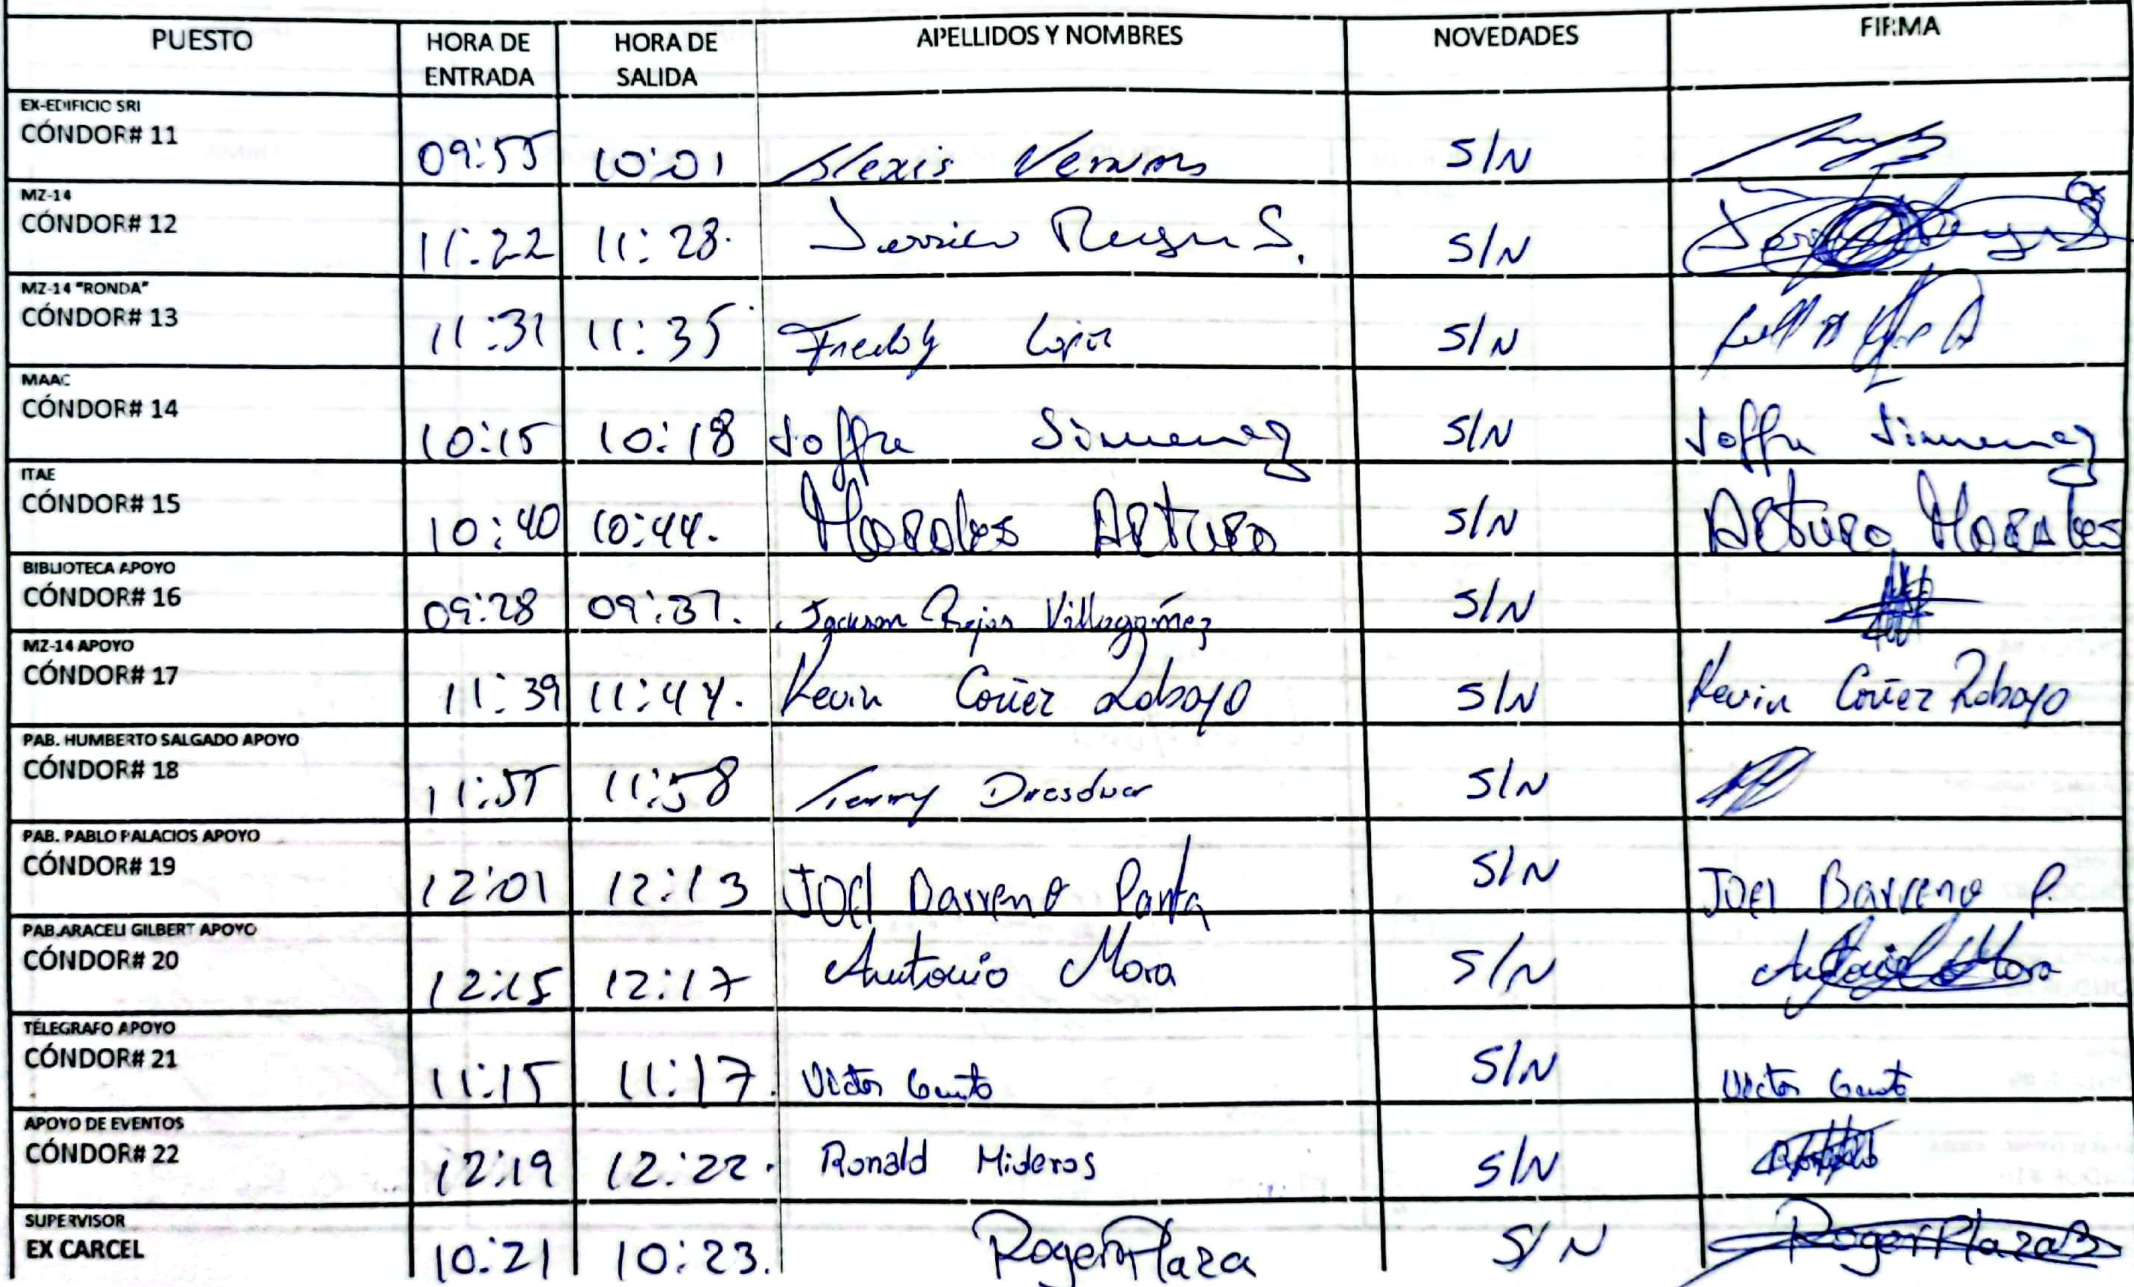 PUESTO HORA DE ENTRADA HORA DE SALIDA APELLIDOS Y NOMBRES NOVEDADES FIRMA
EX-EDIFICIO SRI
CÓNDOR# 11 09:55 10:01 Alexis S/N
MZ-14
CÓNDOR# 12 11:22 11:28. S. S/N
MZ-14 "RONDA"
CÓNDOR# 13 11:31 11:35 Freddy S/N
MAAC
CÓNDOR# 14 10:15 10:18 Joffre Jimenez S/N Joffre Jimenez
ITAE
CÓNDOR# 15 10:40 10:44. Morales Arturo S/N Arturo Morales
BIBLIOTECA APOYO
CÓNDOR# 16 09:28 09:37. Jackson Rojas Villagómez S/N
MZ-14 APOYO
CÓNDOR# 17 11:39 11:44. Kevin Cortez Robayo S/N Kevin Cortez Robayo
PAB. HUMBERTO SALGADO APOYO
CÓNDOR# 18 11:55 11:58 S/N
PAB. PABLO PALACIOS APOYO
CÓNDOR# 19 12:01 12:13 Joel Barreno S/N Joel Barreno P.
PAB.ARACELI GILBERT APOYO
CÓNDOR# 20 12:15 12:17 Antonio Mora S/N Mora
TÉLEGRAFO APOYO
CÓNDOR# 21 11:15 11:17. Victor S/N Victor
APOYO DE EVENTOS
CÓNDOR# 22 12:19 12:22. Ronald Mideros S/N
SUPERVISOR
EX CARCEL 10:21 10:23. Roger Plaza S/N Roger Plaza B